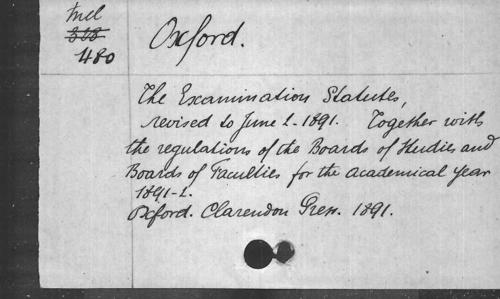 Mel
323
480
Oxford.
The Examination Statutes,
revised to June 2. 1891. Together with
the regulations of the Boards of Studies and
Boards of Faculties for the Academical Year
1891-2.
Oxford. Clarendon Press. 1891.